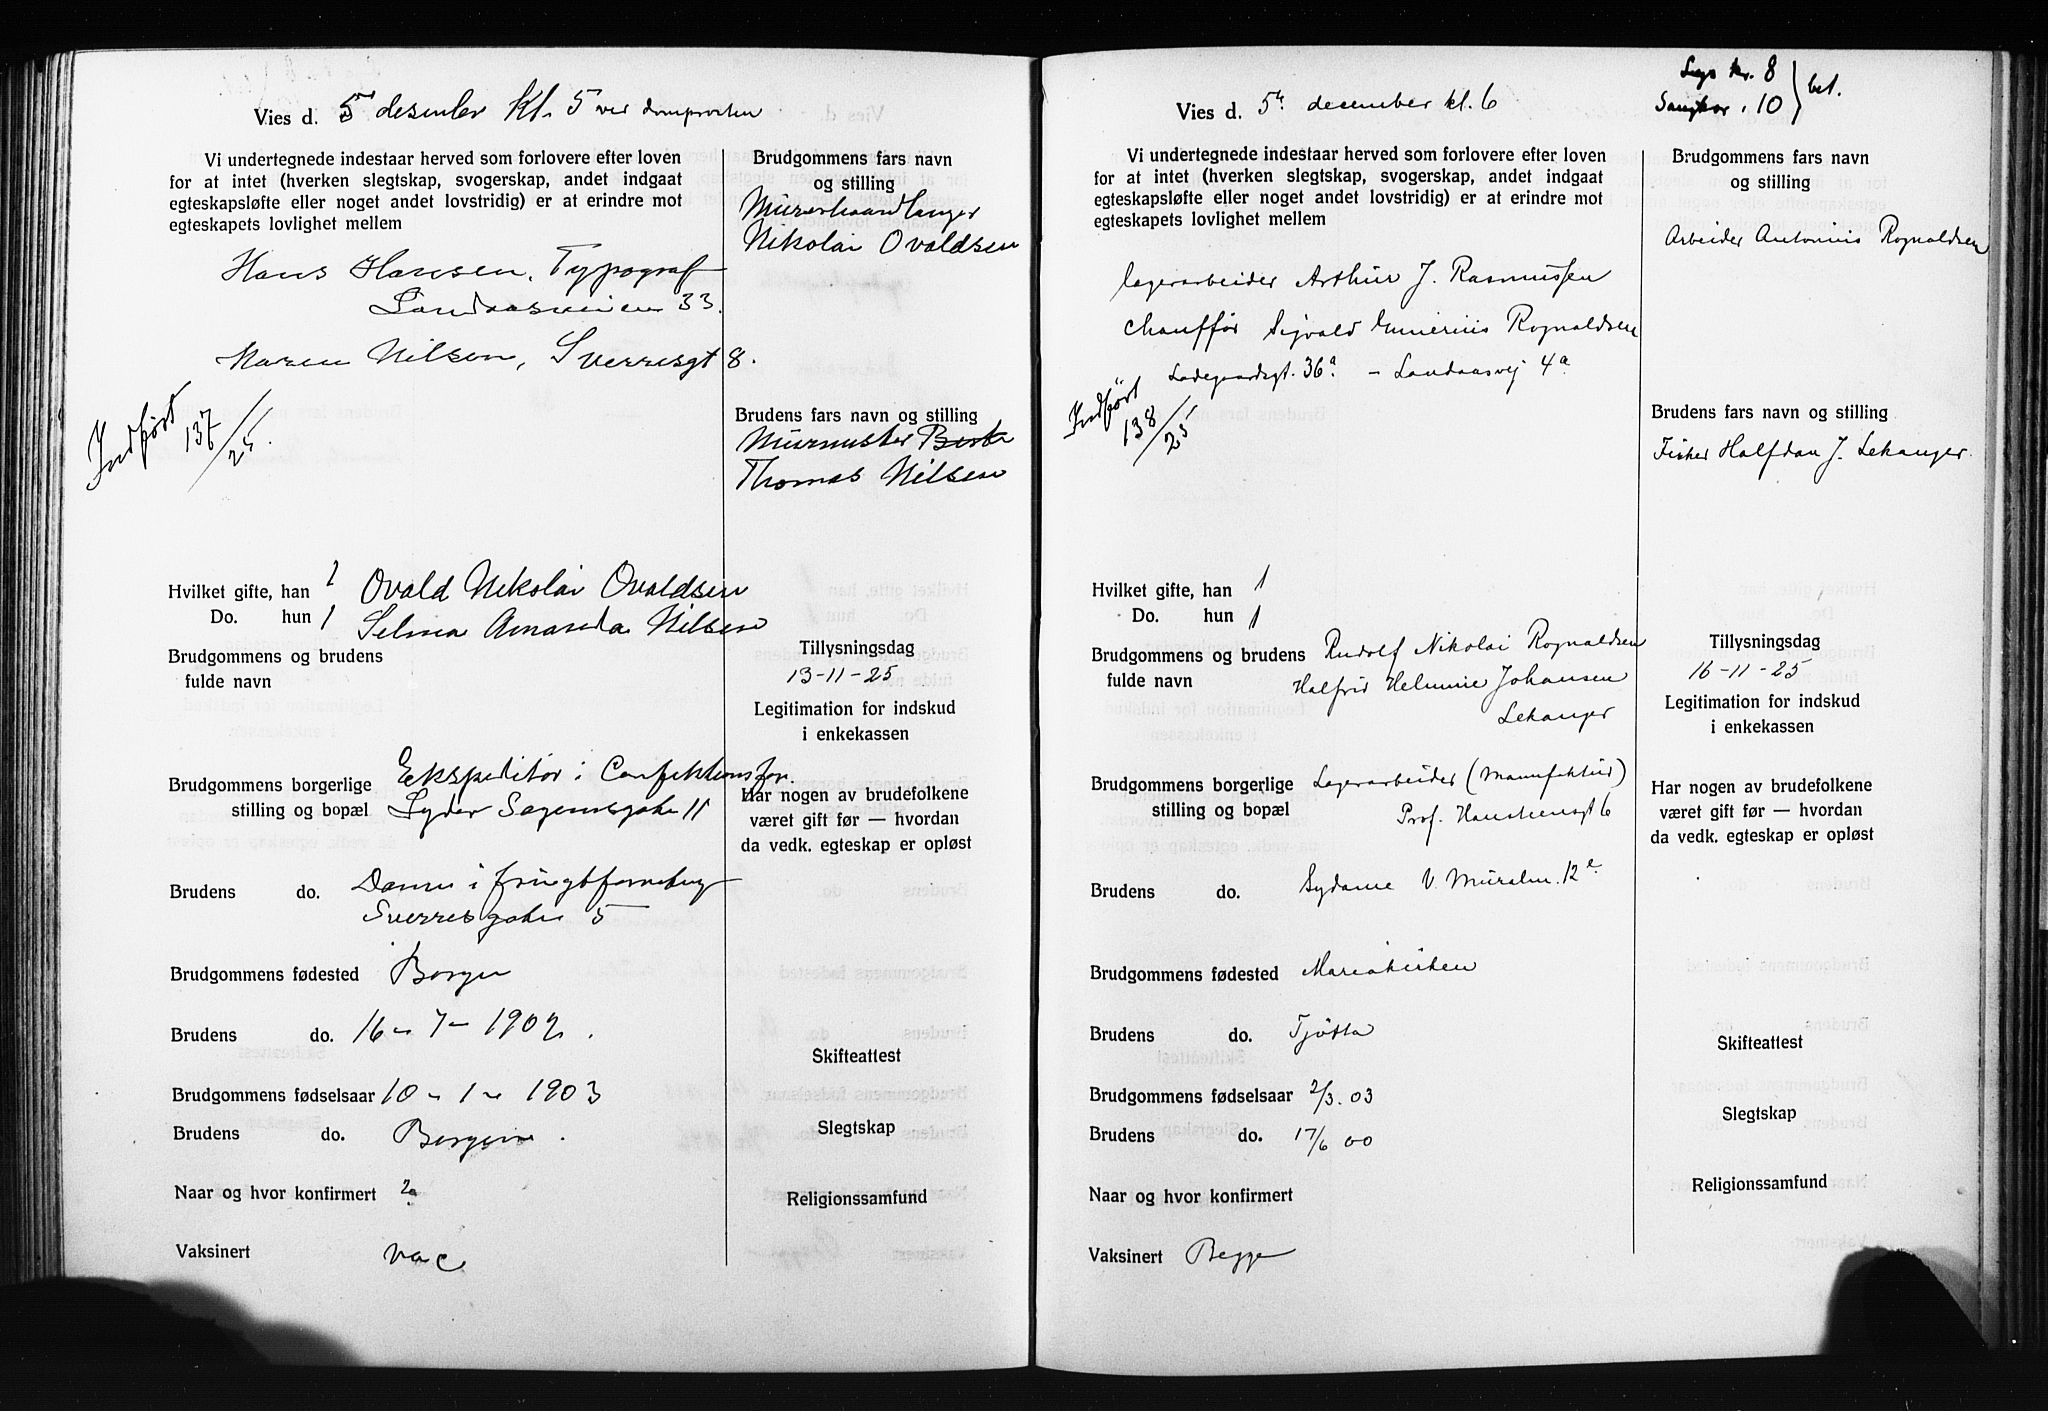 Vies d. 5 desember kl. 5 ved domprosten
Vi undertegnede indestaar herved som forlovere efter loven
for at intet (hverken slegtskap, svogerskap, andet indgaat
egteskapsløfte eller noget andet lovstridig) er at erindre mot
egteskapets lovlighet mellem
Hans Hansen, Typograf
Landaasveien 33.
Maren Nilsen, Sverresgt 8.
Indført 137/25.
Brudgommens fars navn
og stilling
Murerhaandlanger
Nikolai Ovaldsen
Brudens fars navn og stilling
Murmester
Thomas Nilsen
Hvilket gifte, han 1
Do. hun 1
Ovald Nikolai Ovaldsen
Selma Amanda Nilsen
Brudgommens og brudens
fulde navn
Tillysningsdag
13-11-25
Legitimation for indskud
i enkekassen
Brudgommens borgerlige
stilling og bopæl
Ekspeditør i Confektionsfor.
Lyder Sagensgate 11
Har nogen av brudefolkene
været gift før — hvordan
da vedk. egteskap er opløst
Brudens do. Dame i
Sverresgaten 5
Brudgommens fødested Bergen
Brudens do. 16-7-1902.
Skifteattest
Brudgommens fødselsaar 10-1-1903
Brudens do. Bergen.
Slegtskap
Naar og hvor konfirmert
Religionssamfund
Vaksinert vac
Vies d. 5te december kl. 6
kr. 8
Sangkor. 10
bet.
Vi undertegnede indestaar herved som forlovere efter loven
for at intet (hverken slegtskap, svogerskap, andet indgaat
egteskapsløfte eller noget andet lovstridig) er at erindre mot
egteskapets lovlighet mellem
lagerarbeider Arthur J. Rasmussen
chauffør Sigvald Rognaldsen
Ladegaardsgt. 36a - Landaasvej 4a
Indført 138/25
Brudgommens fars navn
og stilling
Arbeider Antonius Rognaldsen
Brudens fars navn og stilling
Fisker Halfdan J. Lekanger.
Hvilket gifte, han 1
Do. hun 1
Brudgommens og brudens
fulde navn
Rudolf Nikolai Rognaldsen
Halfrid Helmine Johansen
Lekanger
Tillysningsdag
16-11-25
Legitimation for indskud
i enkekassen
Brudgommens borgerlige
stilling og bopæl
Lagerarbeider (Manufaktur)
Prof. Hansteensgt 6
Har nogen av brudefolkene
været gift før — hvordan
da vedk. egteskap er opløst
Brudens do. Sydame V. Muralm. 12e
Brudgommens fødested Mariakirken
Brudens do. Tjøtta
Skifteattest
Brudgommens fødselsaar 2/3.03
Brudens do. 17/6 00
Slegtskap
Naar og hvor konfirmert
Religionssamfund
Vaksinert Begge